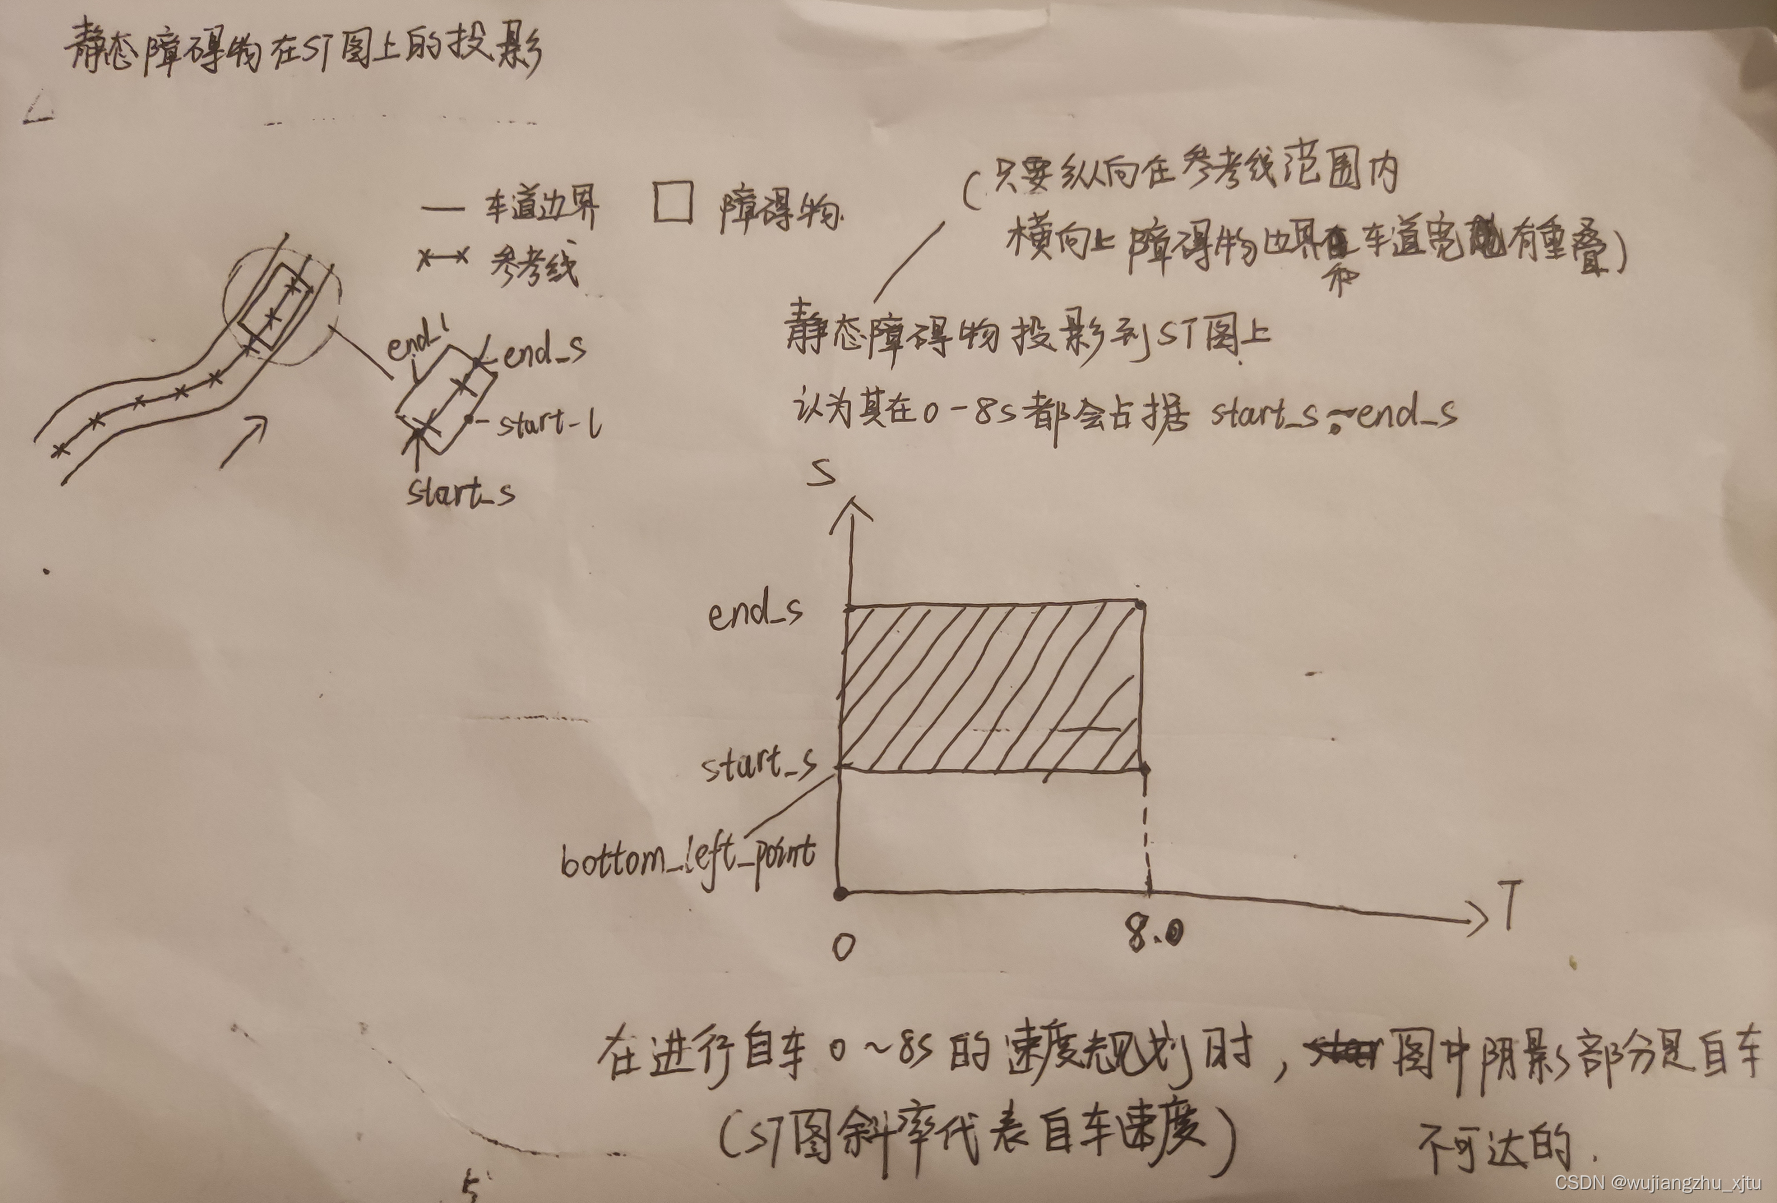 静态障碍物在ST图上的投影
车道边界
障碍物
参考线
(只要纵向在参考线范围内
横向上障碍物边界和车道宽有重叠)
end_l
end_s
start_l
start_s
静态障碍物投影到ST图上
认为其在0-8s都会占据 start_s~end_s
S
end_s
start_s
bottom_left_point
0
8.0
T
在进行自车0~8s的速度规划时,图中阴影部分是自车
不可达的.
(ST图斜率代表自车速度)
CSDN @wujiangzhu_xjtu